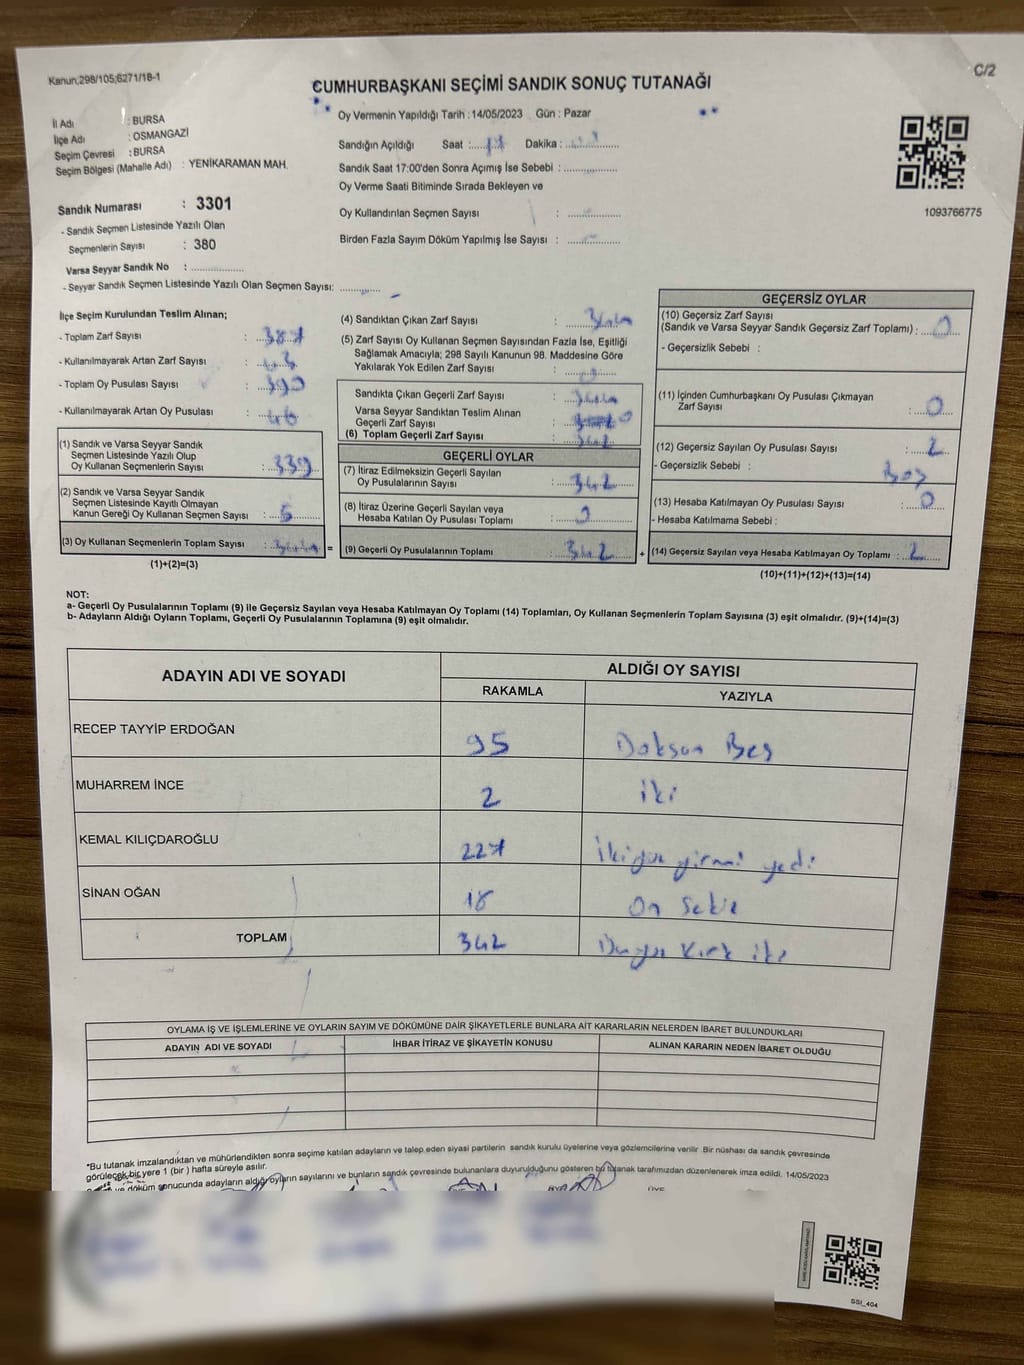 Kanun;298/105;6271/18-1
C/2
CUMHURBAŞKANI SEÇİMİ SANDIK SONUÇ TUTANAĞI
İl Adı : BURSA
İlçe Adı : OSMANGAZİ
Seçim Çevresi : BURSA
Seçim Bölgesi (Mahalle Adı) : YENİKARAMAN MAH.
Sandık Numarası : 3301
- Sandık Seçmen Listesinde Yazılı Olan
Seçmenlerin Sayısı : 380
Varsa Seyyar Sandık No :
- Seyyar Sandık Seçmen Listesinde Yazılı Olan Seçmen Sayısı:
Oy Vermenin Yapıldığı Tarih :14/05/2023 Gün : Pazar
Sandığın Açıldığı Saat : 17 Dakika :
Sandık Saat 17:00'den Sonra Açılmış İse Sebebi :
Oy Verme Saati Bitiminde Sırada Bekleyen ve
Oy Kullandırılan Seçmen Sayısı :
Birden Fazla Sayım Döküm Yapılmış İse Sayısı :
1093766775
İlçe Seçim Kurulundan Teslim Alınan;
- Toplam Zarf Sayısı : 387
- Kullanılmayarak Artan Zarf Sayısı : 43
- Toplam Oy Pusulası Sayısı : 390
- Kullanılmayarak Artan Oy Pusulası : 46
(1) Sandık ve Varsa Seyyar Sandık
Seçmen Listesinde Yazılı Olup
Oy Kullanan Seçmenlerin Sayısı : 339
(2) Sandık ve Varsa Seyyar Sandık
Seçmen Listesinde Kayıtlı Olmayan
Kanun Gereği Oy Kullanan Seçmen Sayısı : 5
(3) Oy Kullanan Seçmenlerin Toplam Sayısı : 344 =
(1)+(2)=(3)
(4) Sandıktan Çıkan Zarf Sayısı : 344
(5) Zarf Sayısı Oy Kullanan Seçmen Sayısından Fazla İse, Eşitliği
Sağlamak Amacıyla; 298 Sayılı Kanunun 98. Maddesine Göre
Yakılarak Yok Edilen Zarf Sayısı : 0
Sandıkta Çıkan Geçerli Zarf Sayısı : 344
Varsa Seyyar Sandıktan Teslim Alınan
Geçerli Zarf Sayısı : 0
(6) Toplam Geçerli Zarf Sayısı : 342
GEÇERLİ OYLAR
(7) İtiraz Edilmeksizin Geçerli Sayılan
Oy Pusulalarının Sayısı : 342
(8) İtiraz Üzerine Geçerli Sayılan veya
Hesaba Katılan Oy Pusulası Toplamı : 0
(9) Geçerli Oy Pusulalarının Toplamı : 342 +
GEÇERSİZ OYLAR
(10) Geçersiz Zarf Sayısı
(Sandık ve Varsa Seyyar Sandık Geçersiz Zarf Toplamı) : 0
- Geçersizlik Sebebi :
(11) İçinden Cumhurbaşkanı Oy Pusulası Çıkmayan
Zarf Sayısı : 0
(12) Geçersiz Sayılan Oy Pusulası Sayısı : 2
- Geçersizlik Sebebi : Boş
(13) Hesaba Katılmayan Oy Pusulası Sayısı : 0
- Hesaba Katılmama Sebebi :
(14) Geçersiz Sayılan veya Hesaba Katılmayan Oy Toplamı : 2
(10)+(11)+(12)+(13)=(14)
NOT:
a- Geçerli Oy Pusulalarının Toplamı (9) ile Geçersiz Sayılan veya Hesaba Katılmayan Oy Toplamı (14) Toplamları, Oy Kullanan Seçmenlerin Toplam Sayısına (3) eşit olmalıdır. (9)+(14)=(3)
b- Adayların Aldığı Oyların Toplamı, Geçerli Oy Pusulalarının Toplamına (9) eşit olmalıdır.
ADAYIN ADI VE SOYADI ALDIĞI OY SAYISI
RAKAMLA YAZIYLA
RECEP TAYYİP ERDOĞAN 95 Doksan Beş
MUHARREM İNCE 2 iki
KEMAL KILIÇDAROĞLU 227 İkiyüz yirmi yedi
SİNAN OĞAN 18 On Sekiz
TOPLAM 342 Üçyüz Kırk iki
OYLAMA İŞ VE İŞLEMLERİNE VE OYLARIN SAYIM VE DÖKÜMÜNE DAİR ŞİKAYETLERLE BUNLARA AİT KARARLARIN NELERDEN İBARET BULUNDUKLARI
ADAYIN ADI VE SOYADI İHBAR İTİRAZ VE ŞİKAYETİN KONUSU ALINAN KARARIN NEDEN İBARET OLDUĞU
*Bu tutanak imzalandıktan ve mühürlendikten sonra seçime katılan adayların ve talep eden siyasi partilerin sandık kurulu üyelerine veya gözlemcilerine verilir. Bir nüshası da sandık çevresinde
görülecek bir yere 1 (bir ) hafta süreyle asılır.
ve döküm sonucunda adayların aldığı oyların sayılarını ve bunların sandık çevresinde bulunanlara duyurulduğunu gösteren bu tutanak tarafımızdan düzenlenerek imza edildi. 14/05/2023
ÜYE
SSI_404